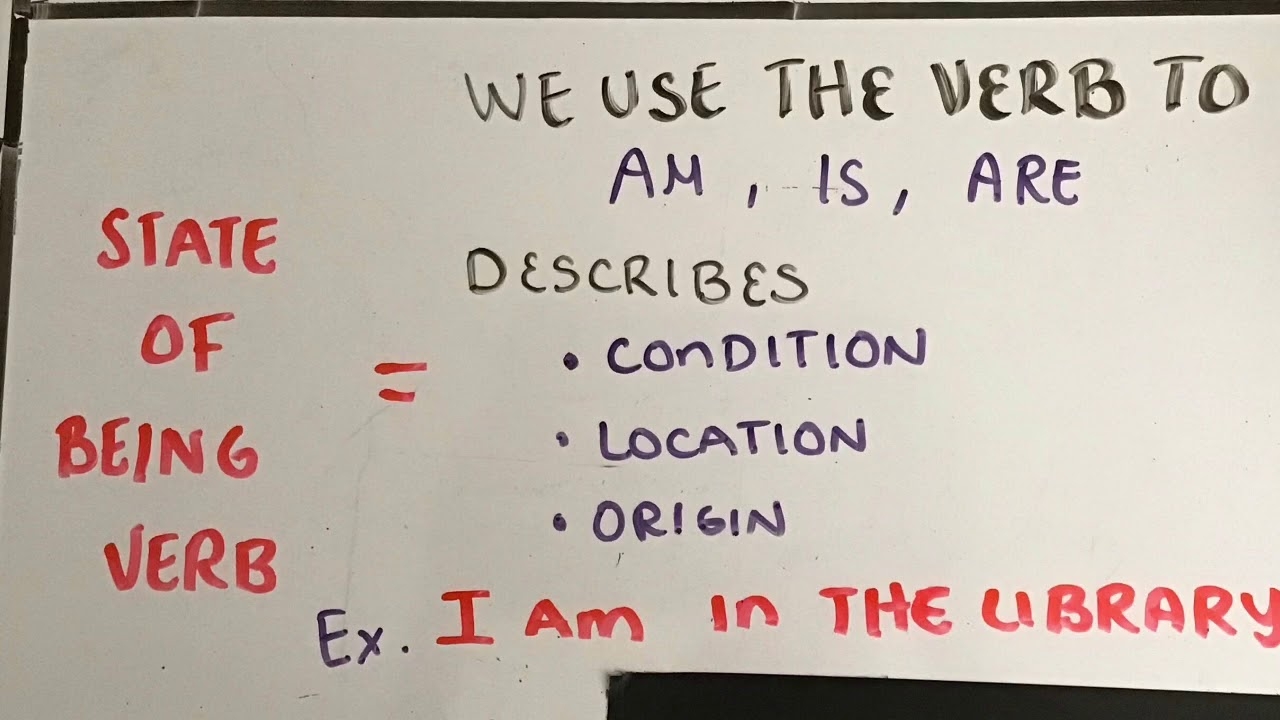 WE USE THE VERB TO
AM, IS, ARE
STATE
OF
BEING
VERB
=
DESCRIBES
• CONDITION
• LOCATION
• ORIGIN
Ex. I AM IN THE LIBRARY